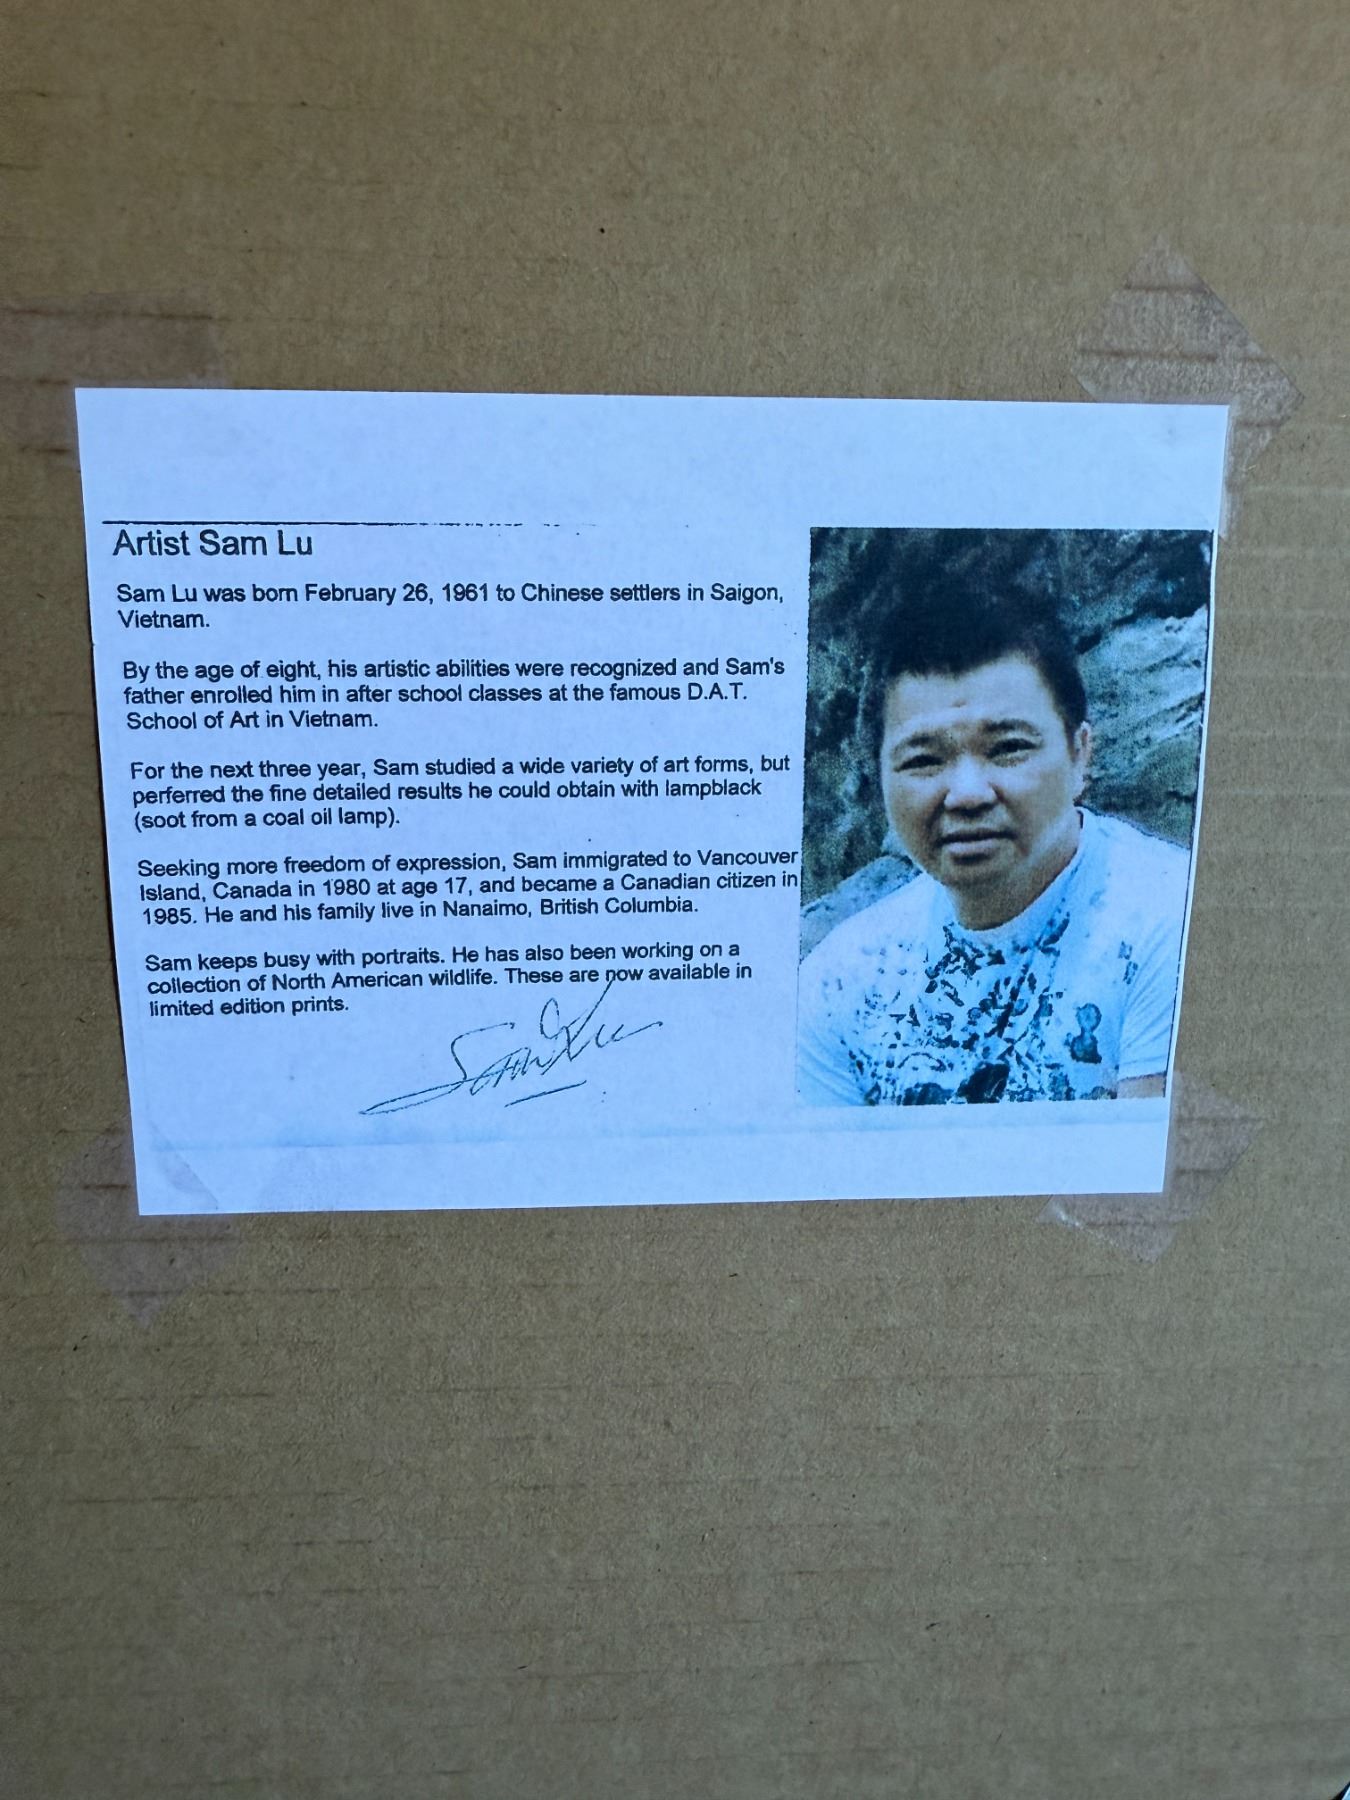 Artist Sam Lu
Sam Lu was born February 26, 1961 to Chinese settlers in Saigon,
Vietnam.
By the age of eight, his artistic abilities were recognized and Sam's
father enrolled him in after school classes at the famous D.A.T.
School of Art in Vietnam.
For the next three year, Sam studied a wide variety of art forms, but
perferred the fine detailed results he could obtain with lampblack
(soot from a coal oil lamp).
Seeking more freedom of expression, Sam immigrated to Vancouver
Island, Canada in 1980 at age 17, and became a Canadian citizen in
1985. He and his family live in Nanaimo, British Columbia.
Sam keeps busy with portraits. He has also been working on a
collection of North American wildlife. These are now available in
limited edition prints.
Sam Lu